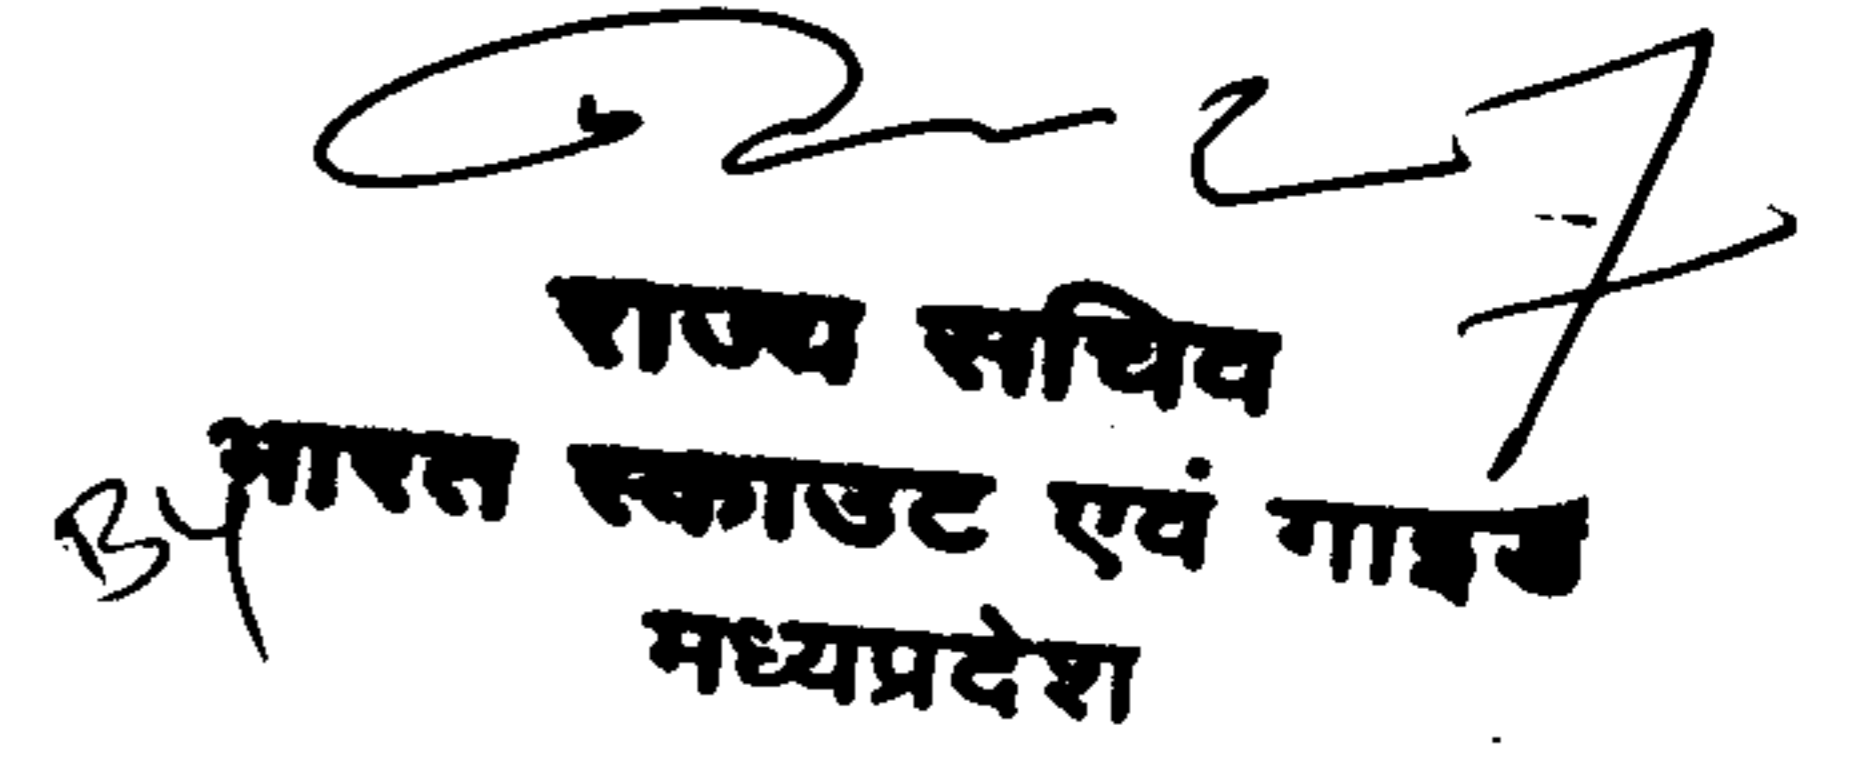 राज्य सचिव
By भारत स्काउट एवं गाइड
मध्यप्रदेश